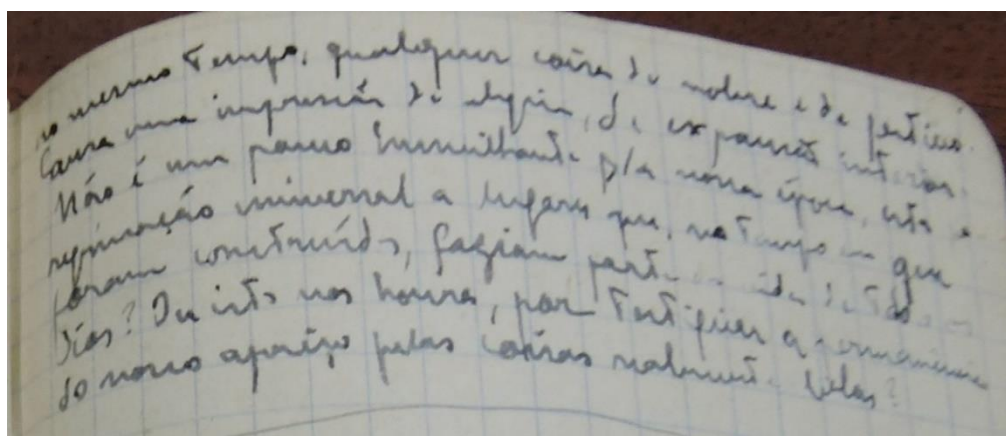 ao mesmo tempo, qualquer coisa de nobre e de
Causa uma impressão de alegria, de expansão interior.
Não é um pouco humilhante p/a nossa época, esta
peregrinação universal a lugares que, no tempo em que
foram construídos, faziam parte da vida de todos os
dias? Ou isto nos honra, por testificar a permanência
do nosso apreço pelas coisas realmente belas?